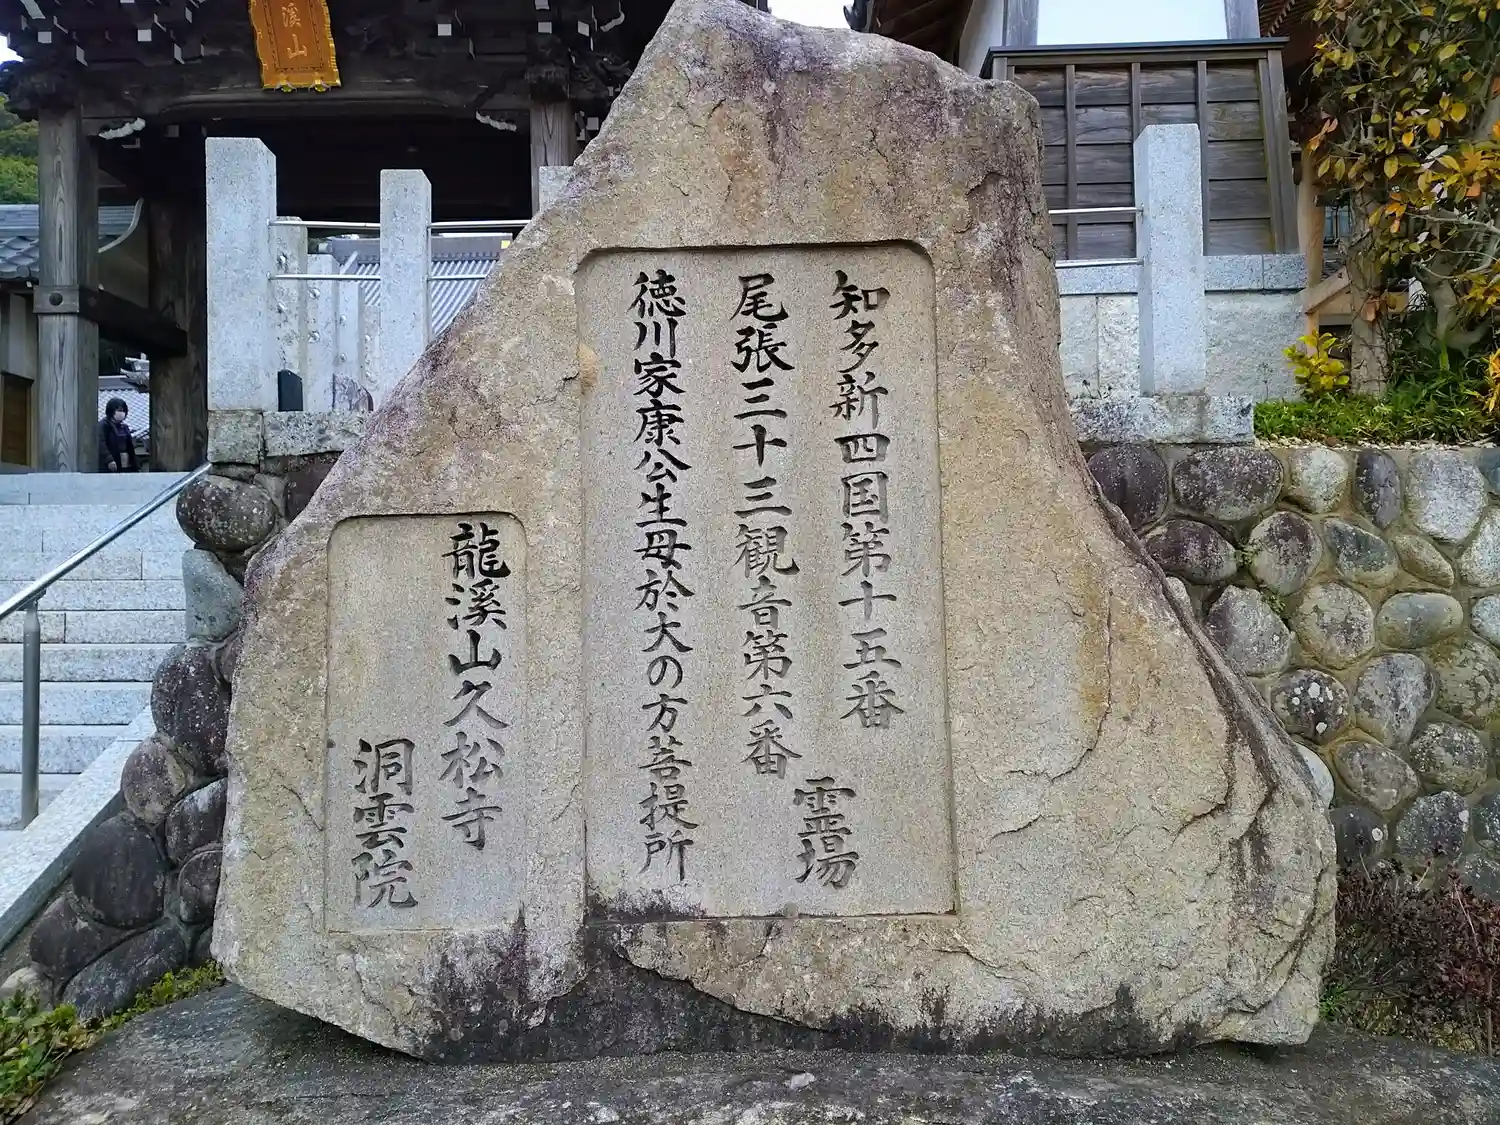 溪山
知多新四国第十五番
尾張三十三観音第六番
霊場
徳川家康公生母於大の方菩提所
龍溪山久松寺
洞雲院